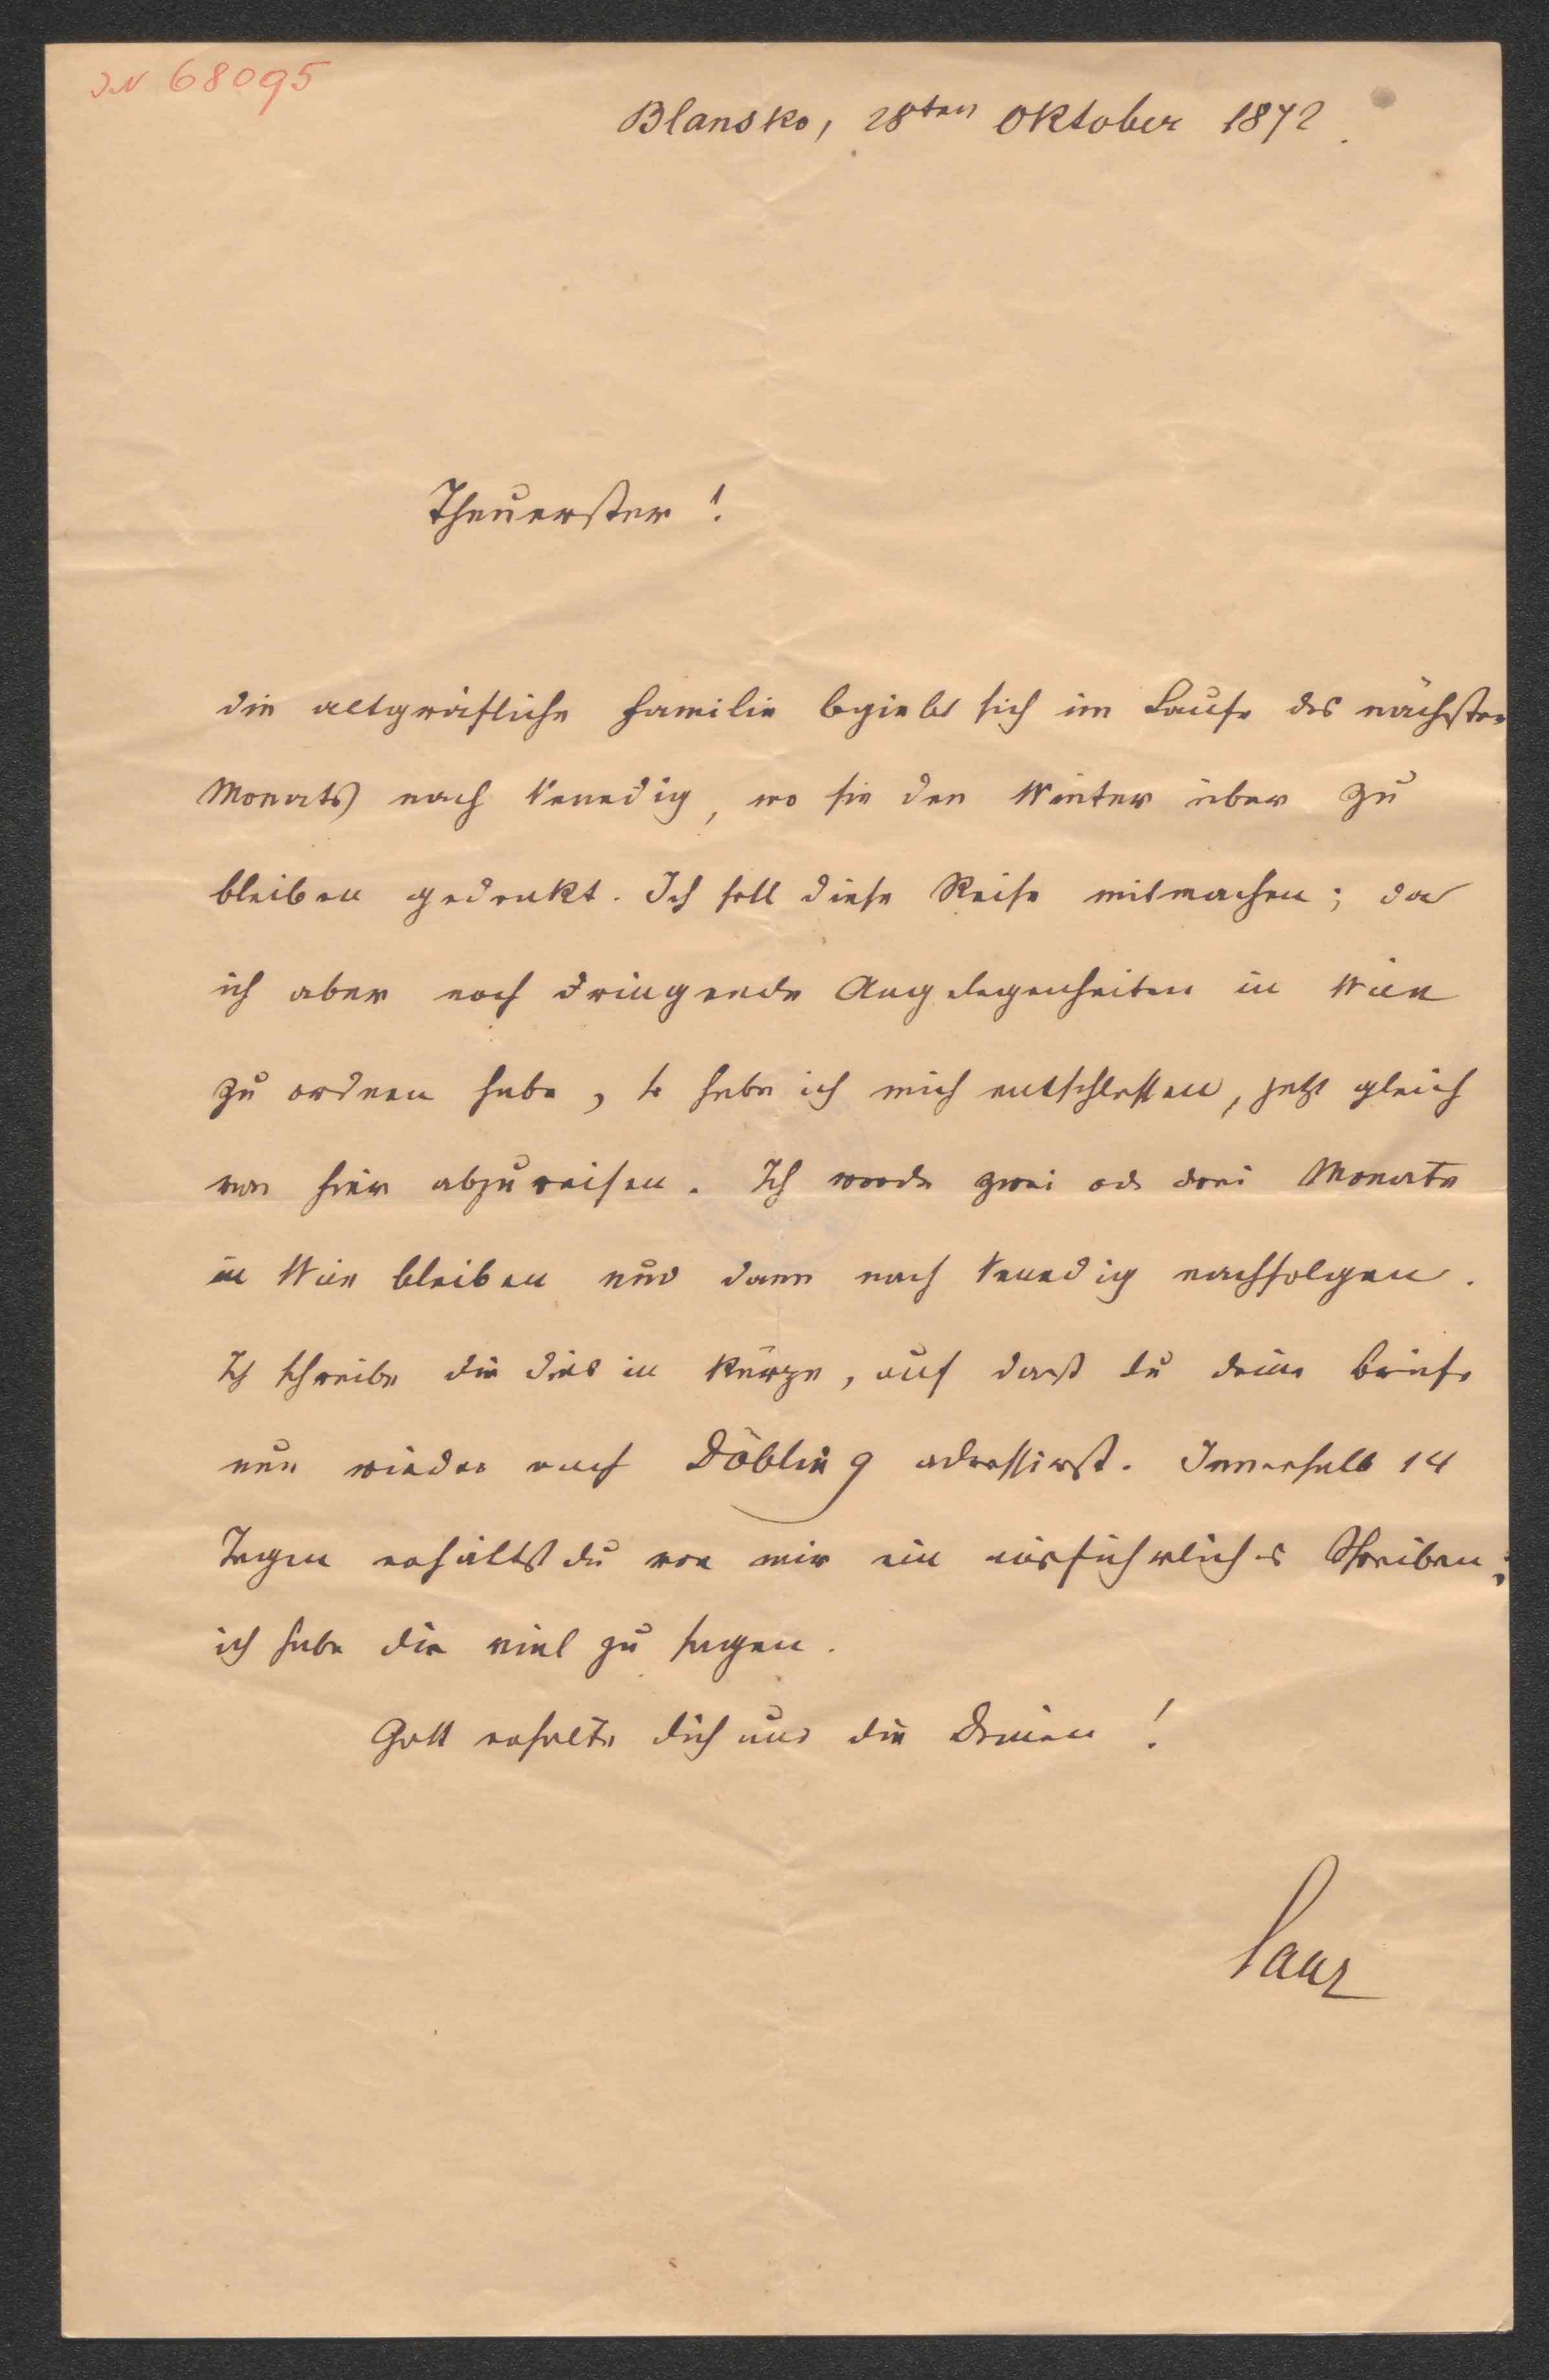 IN 68095
Blansko, 28ten Oktober 1872.
Theuerster!
die altgräfliche Familie begiebt sich im Laufe des nächsten
Monats nach Venedig, wo sie den Winter über zu
bleiben gedenkt. Ich soll diese Reise mitmachen; da
ich aber noch dringende Angelegenheiten in Wien
zu ordnen habe, so habe ich mich entschlossen, jetzt gleich
von hier abzureisen. Ich werde zwei od drei Monate
in Wien bleiben und dann nach Venedig nachfolgen.
Ich schreibe dir dies in Kürze, auf dass du deine Briefe
nun wieder nach Döbling adressirst. Innerhalb 14
Tagen erhältst du von mir ein ausführliches Schreiben;
ich habe dir viel zu sagen.
Gott erhalte dich und die Deinen!
Saar